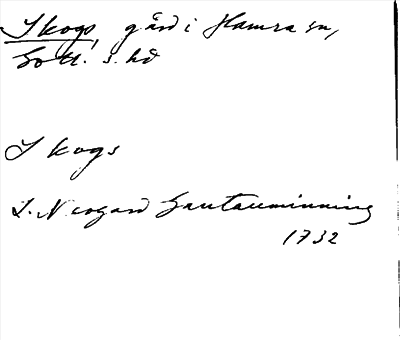 Skogs, gård i Hamra sn,
Gotl. s. hd
Skogs
L. Neogard Gautauminning
1732